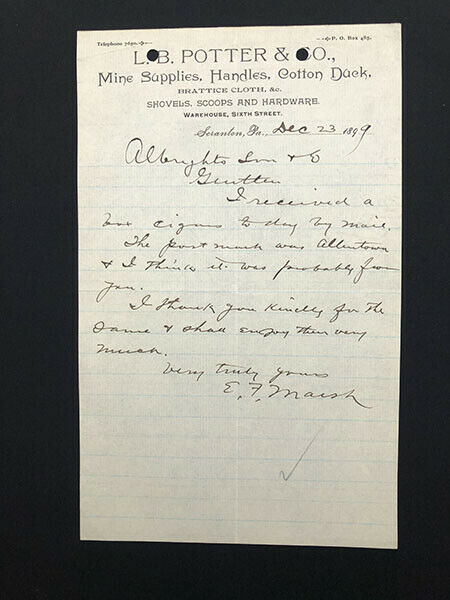 Telephone 7690.
P. O. Box 485.
L. B. POTTER & CO.,
Mine Supplies, Handles, Cotton Duck,
BRATTICE CLOTH, &c.
SHOVELS, SCOOPS AND HARDWARE.
WAREHOUSE, SIXTH STREET.
Scranton, Pa., Dec 23 1899
Albrights Son & Co
Gentlen
I received a
box cigars to day by mail.
The post mark was Allentown
& I think it was probably from
you.
I thank you kindly for the
same & shall enjoy them very
much.
Very truly yours
E. F. Marsh